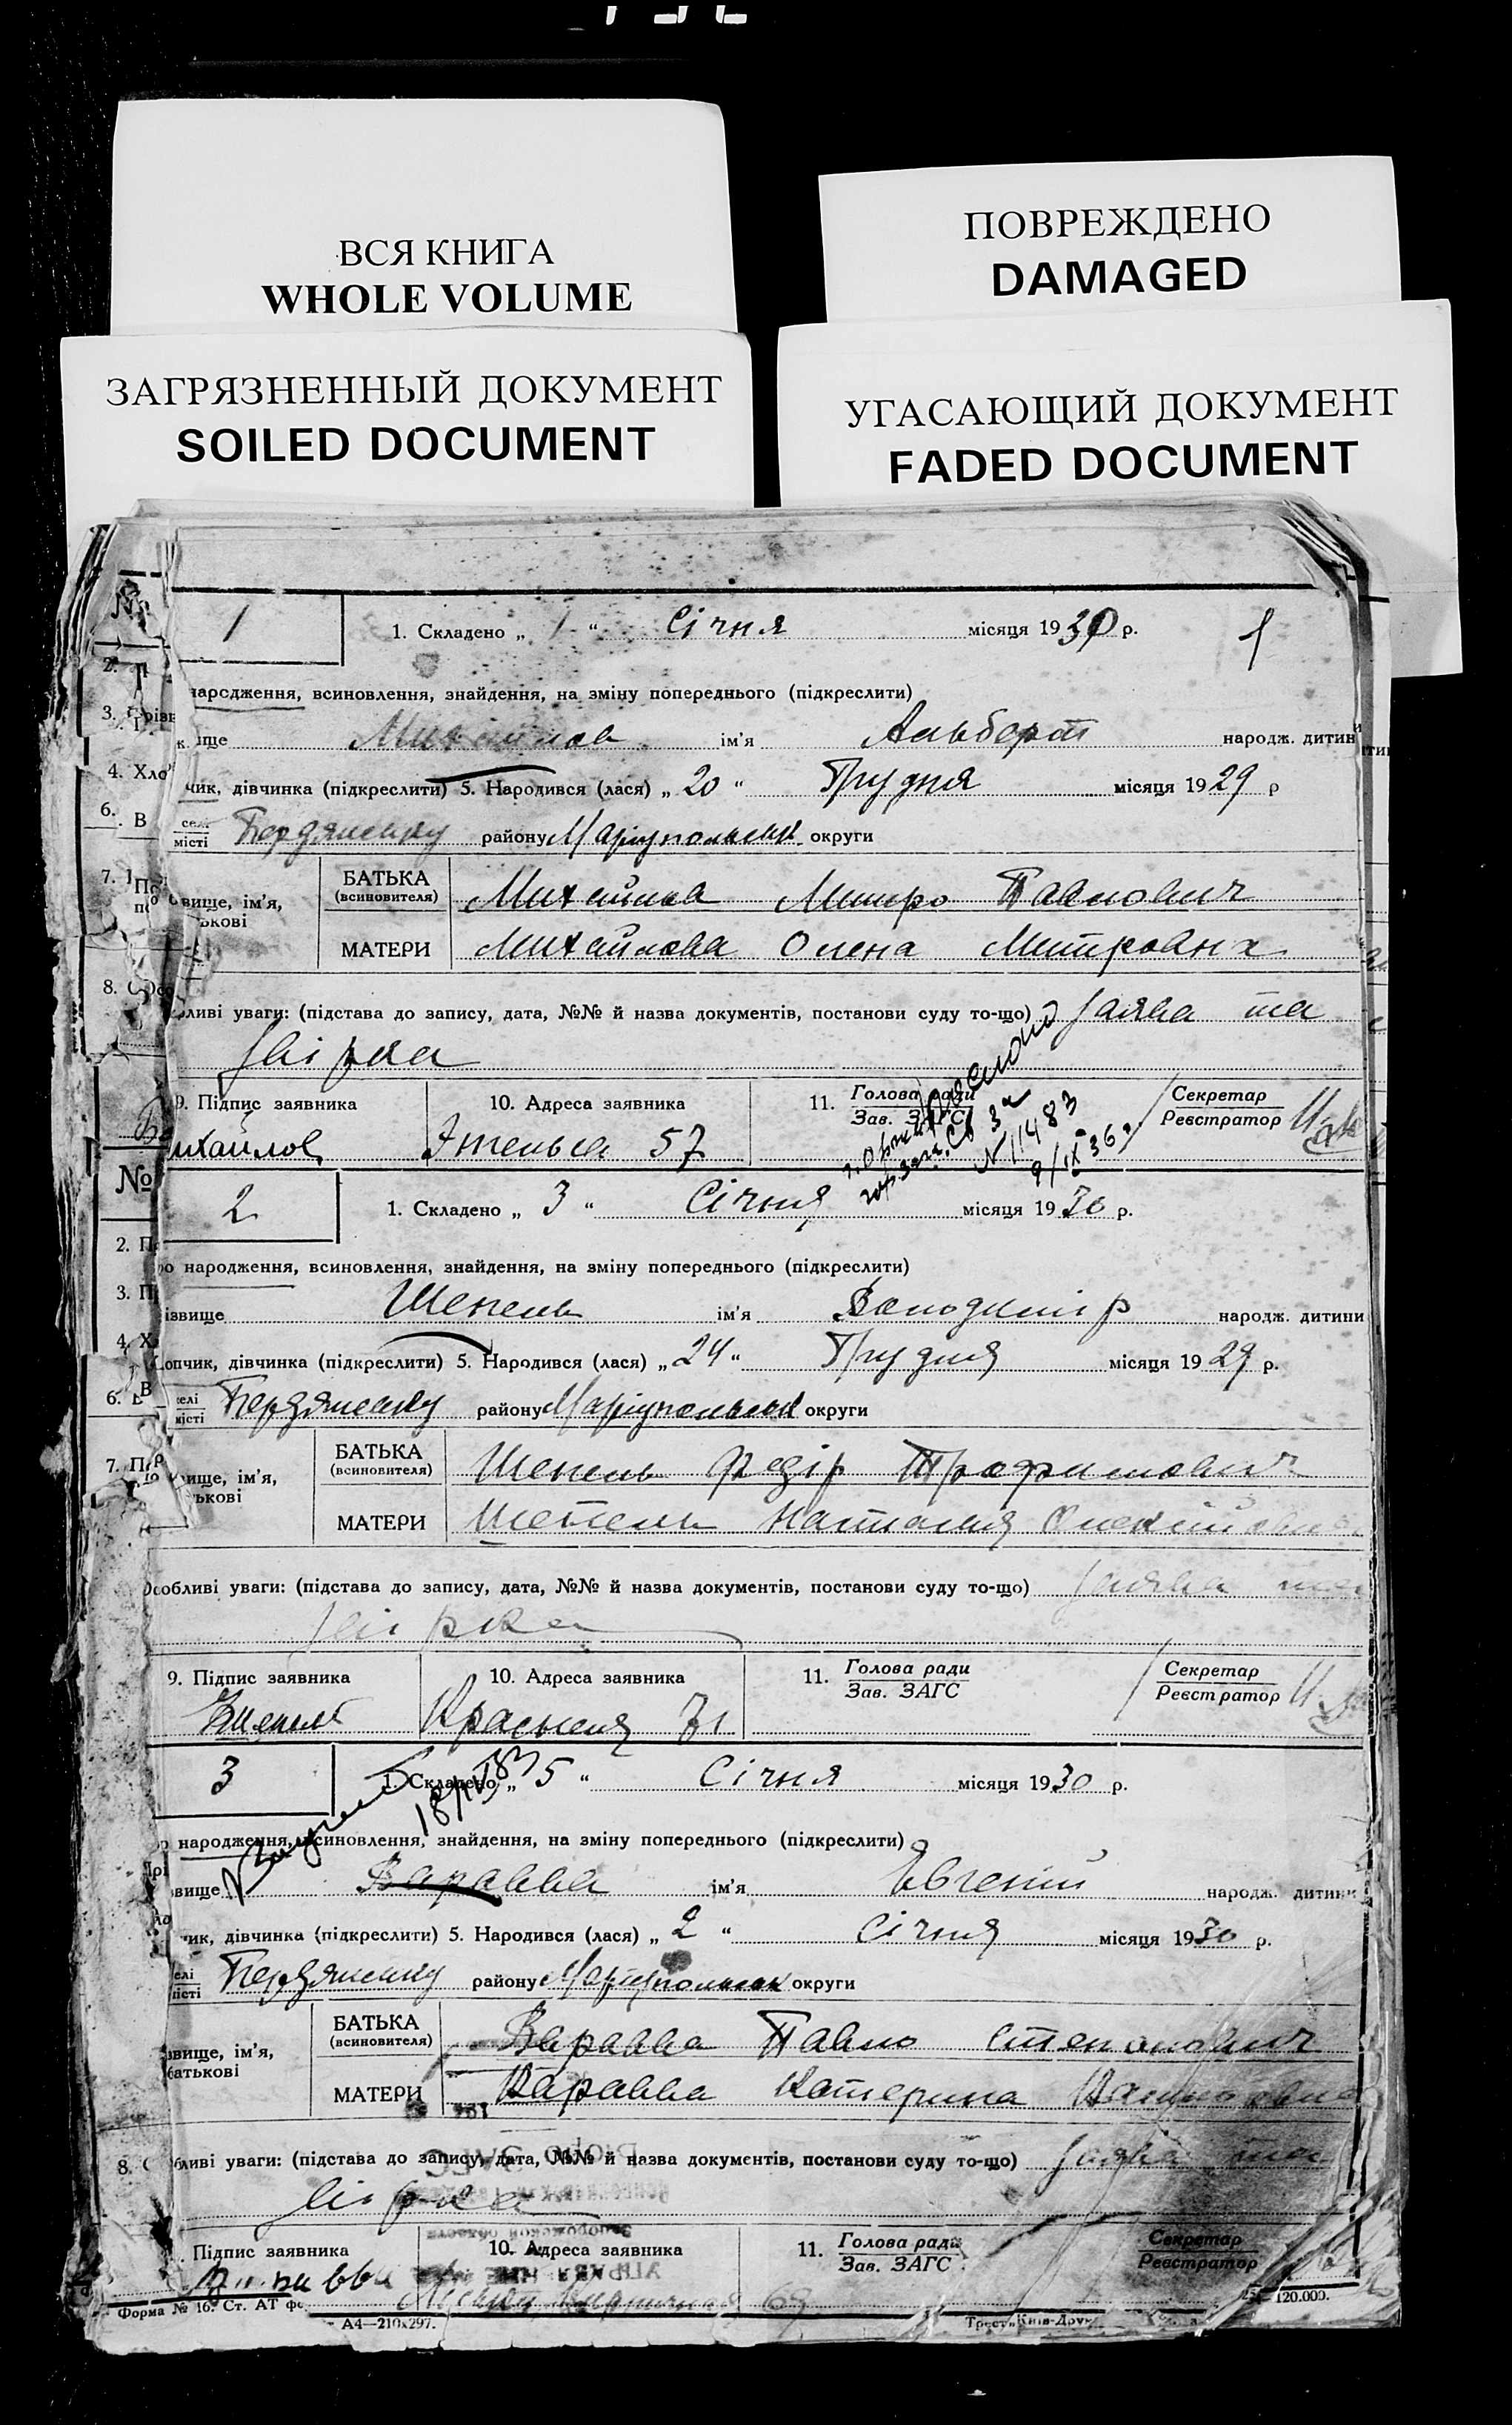 ВСЯ КНИГА
WHOLE VOLUME
ПОВРЕЖДЕНО
DAMAGED
ЗАГРЯЗНЕННЫЙ ДОКУМЕНТ
SOILED DOCUMENT
УГАСАЮЩИЙ ДОКУМЕНТ
FADED DOCUMENT
№ 1 1. Складено „ 1 “ Січня місяця 1930 р. 1
народження, всиновлення, знайдення, на зміну попереднього (підкреслити)
Михайлов ім'я Альберт народж. дитини
чик, дівчинка (підкреслити) 5. Народився (лася) „ 20 “ Грудня місяця 1929 р
селі місті Бердянську району Маріупольськ округи
вище, ім'я, БАТЬКА (всиновителя) Михайлов Митро Павлович
ькові МАТЕРИ Михайлова Олена Митровна
ливі уваги: (підстава до запису, дата, №№ й назва документів, постанови суду то-що) Заява та
звірка
9. Підпис заявника 10. Адреса заявника 11. Голова ради Зав. ЗАГС Секретар Реєстратор
ихайлов 57
№ 11483
9/IX 36 г
№ 2 1. Складено „ 3 “ Січня місяця 1930 р.
2. Про народження, всиновлення, знайдення, на зміну попереднього (підкреслити)
3. Прізвище Шепель ім'я Володимір народж. дитини
4. Хлопчик, дівчинка (підкреслити) 5. Народився (лася) „ 24 “ Грудня місяця 1929 р.
6. В селі місті Бердянську району Маріупольськ округи
7. вище, ім'я, БАТЬКА (всиновителя) Шепель Федір Трофимович
ькові МАТЕРИ Шепель Наталия Олексіївна
Особливі уваги: (підстава до запису, дата, №№ й назва документів, постанови суду то-що) Заява та
звірка
9. Підпис заявника 10. Адреса заявника 11. Голова ради Зав. ЗАГС Секретар Реєстратор
Красная 71
3 1. Складено „ 5 “ Січня місяця 1930 р.
народження, всиновлення, знайдення, на зміну попереднього (підкреслити)
звище Варавва ім'я Євгеній народж. дитини
чик, дівчинка (підкреслити) 5. Народився (лася) „ 2 “ Січня місяця 1930 р.
селі місті Бердянську району Маріупольськ округи
звище, ім'я, БАТЬКА (всиновителя) Варавва Павло Степанович
батькові МАТЕРИ Варавва Катерина
8. бливі уваги: (підстава до запису, дата, №№ й назва документів, постанови суду то-що) Заява та
звірка
Підпис заявника 10. Адреса заявника 11. Голова ради Зав. ЗАГС Секретар Реєстратор
69
Форма № 16. Ст. АТ А4—210х297. Трест „Київ-Друк 120.000.